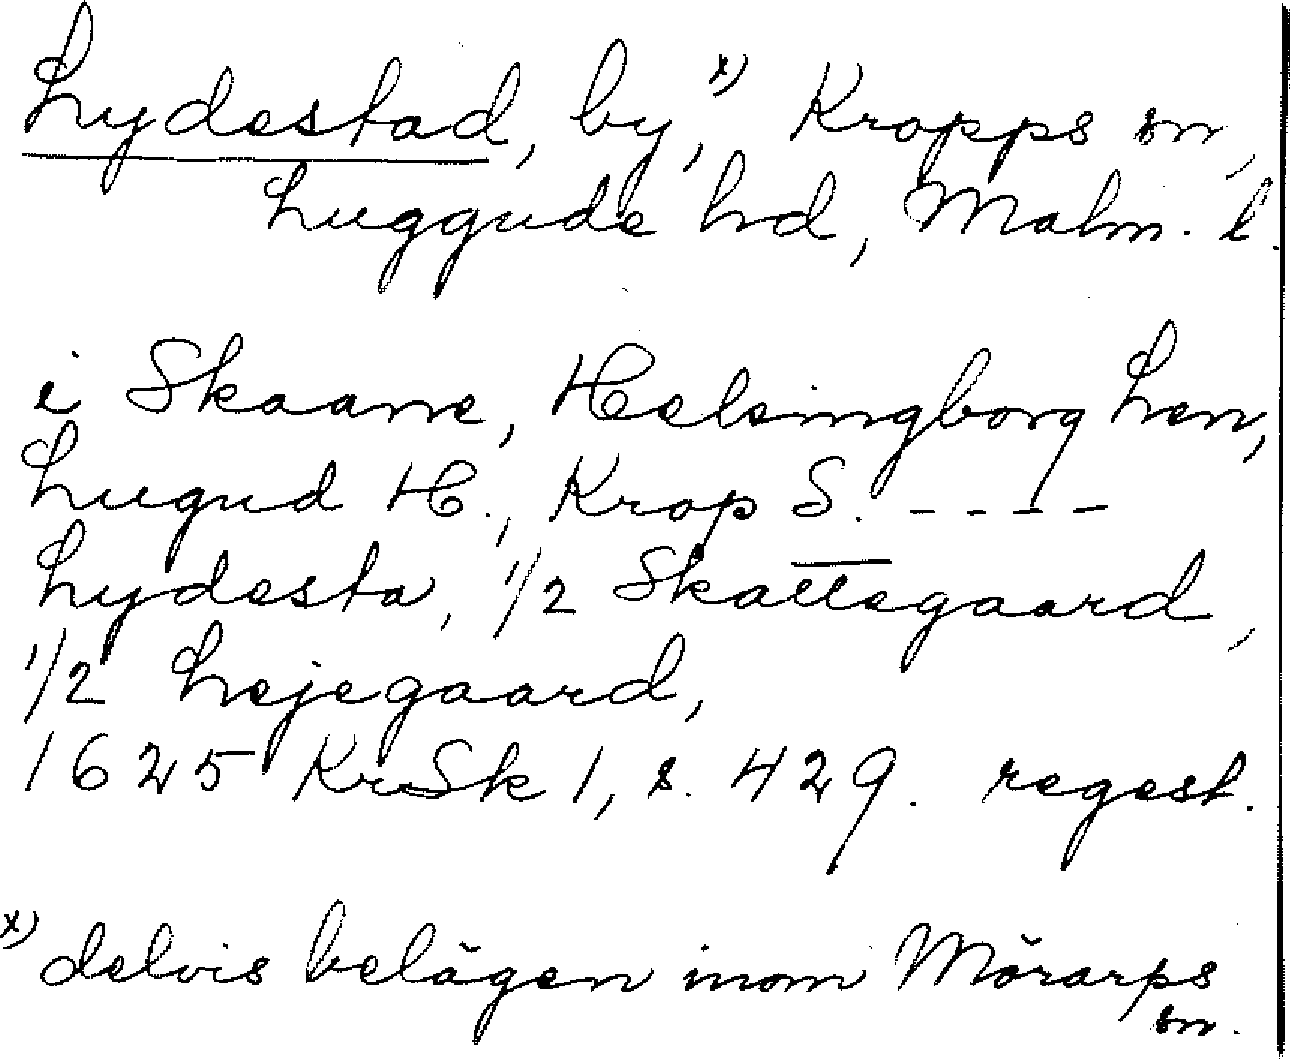 Lydestad, by,x) Kropps sn,
Luggude hd, Malm. l.
i Skaane, Helsingborg Len,
Lugud H., Krop S. - - - -
Lydesta, 1/2 Skattegaard,
1/2 Lejegaard,
1625 KrSk 1, s. 429. regest.
x) delvis belägen inom Mörarps
sn.